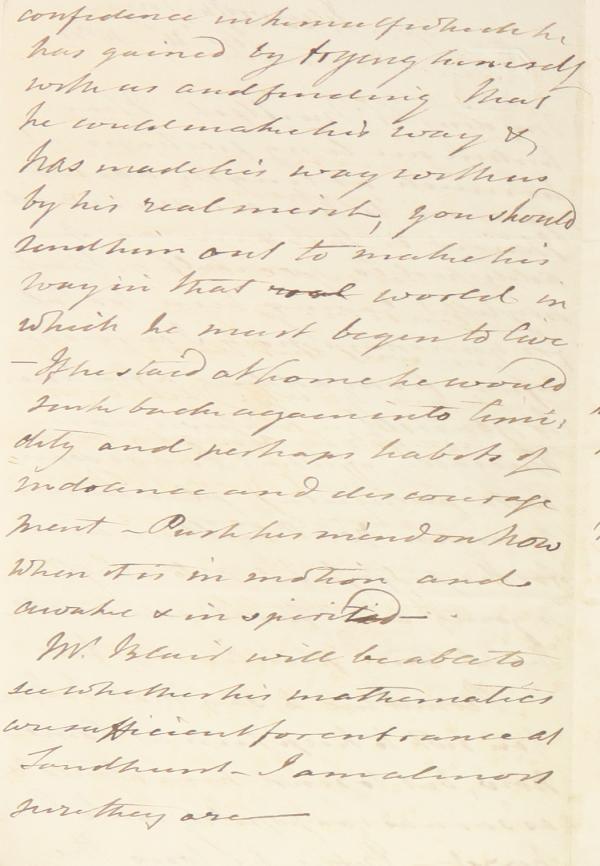 confidence in himself which he
has gained by trying himself
with us and finding that
he could make his way &
has made his way with us
by his real merit, you should
send him out to make his
way in that real world in
which he must begin to live
— If he staid at home he would
sink back again into timi-
dity and perhaps habits of
indolence and discourage
ment – Push his mind on now
when it is in motion and
awake & in spirited –
Mr. Blair will be able to
see whether his mathematics
are sufficient for entrance at
Sandhurst – I am almost
sure they are —